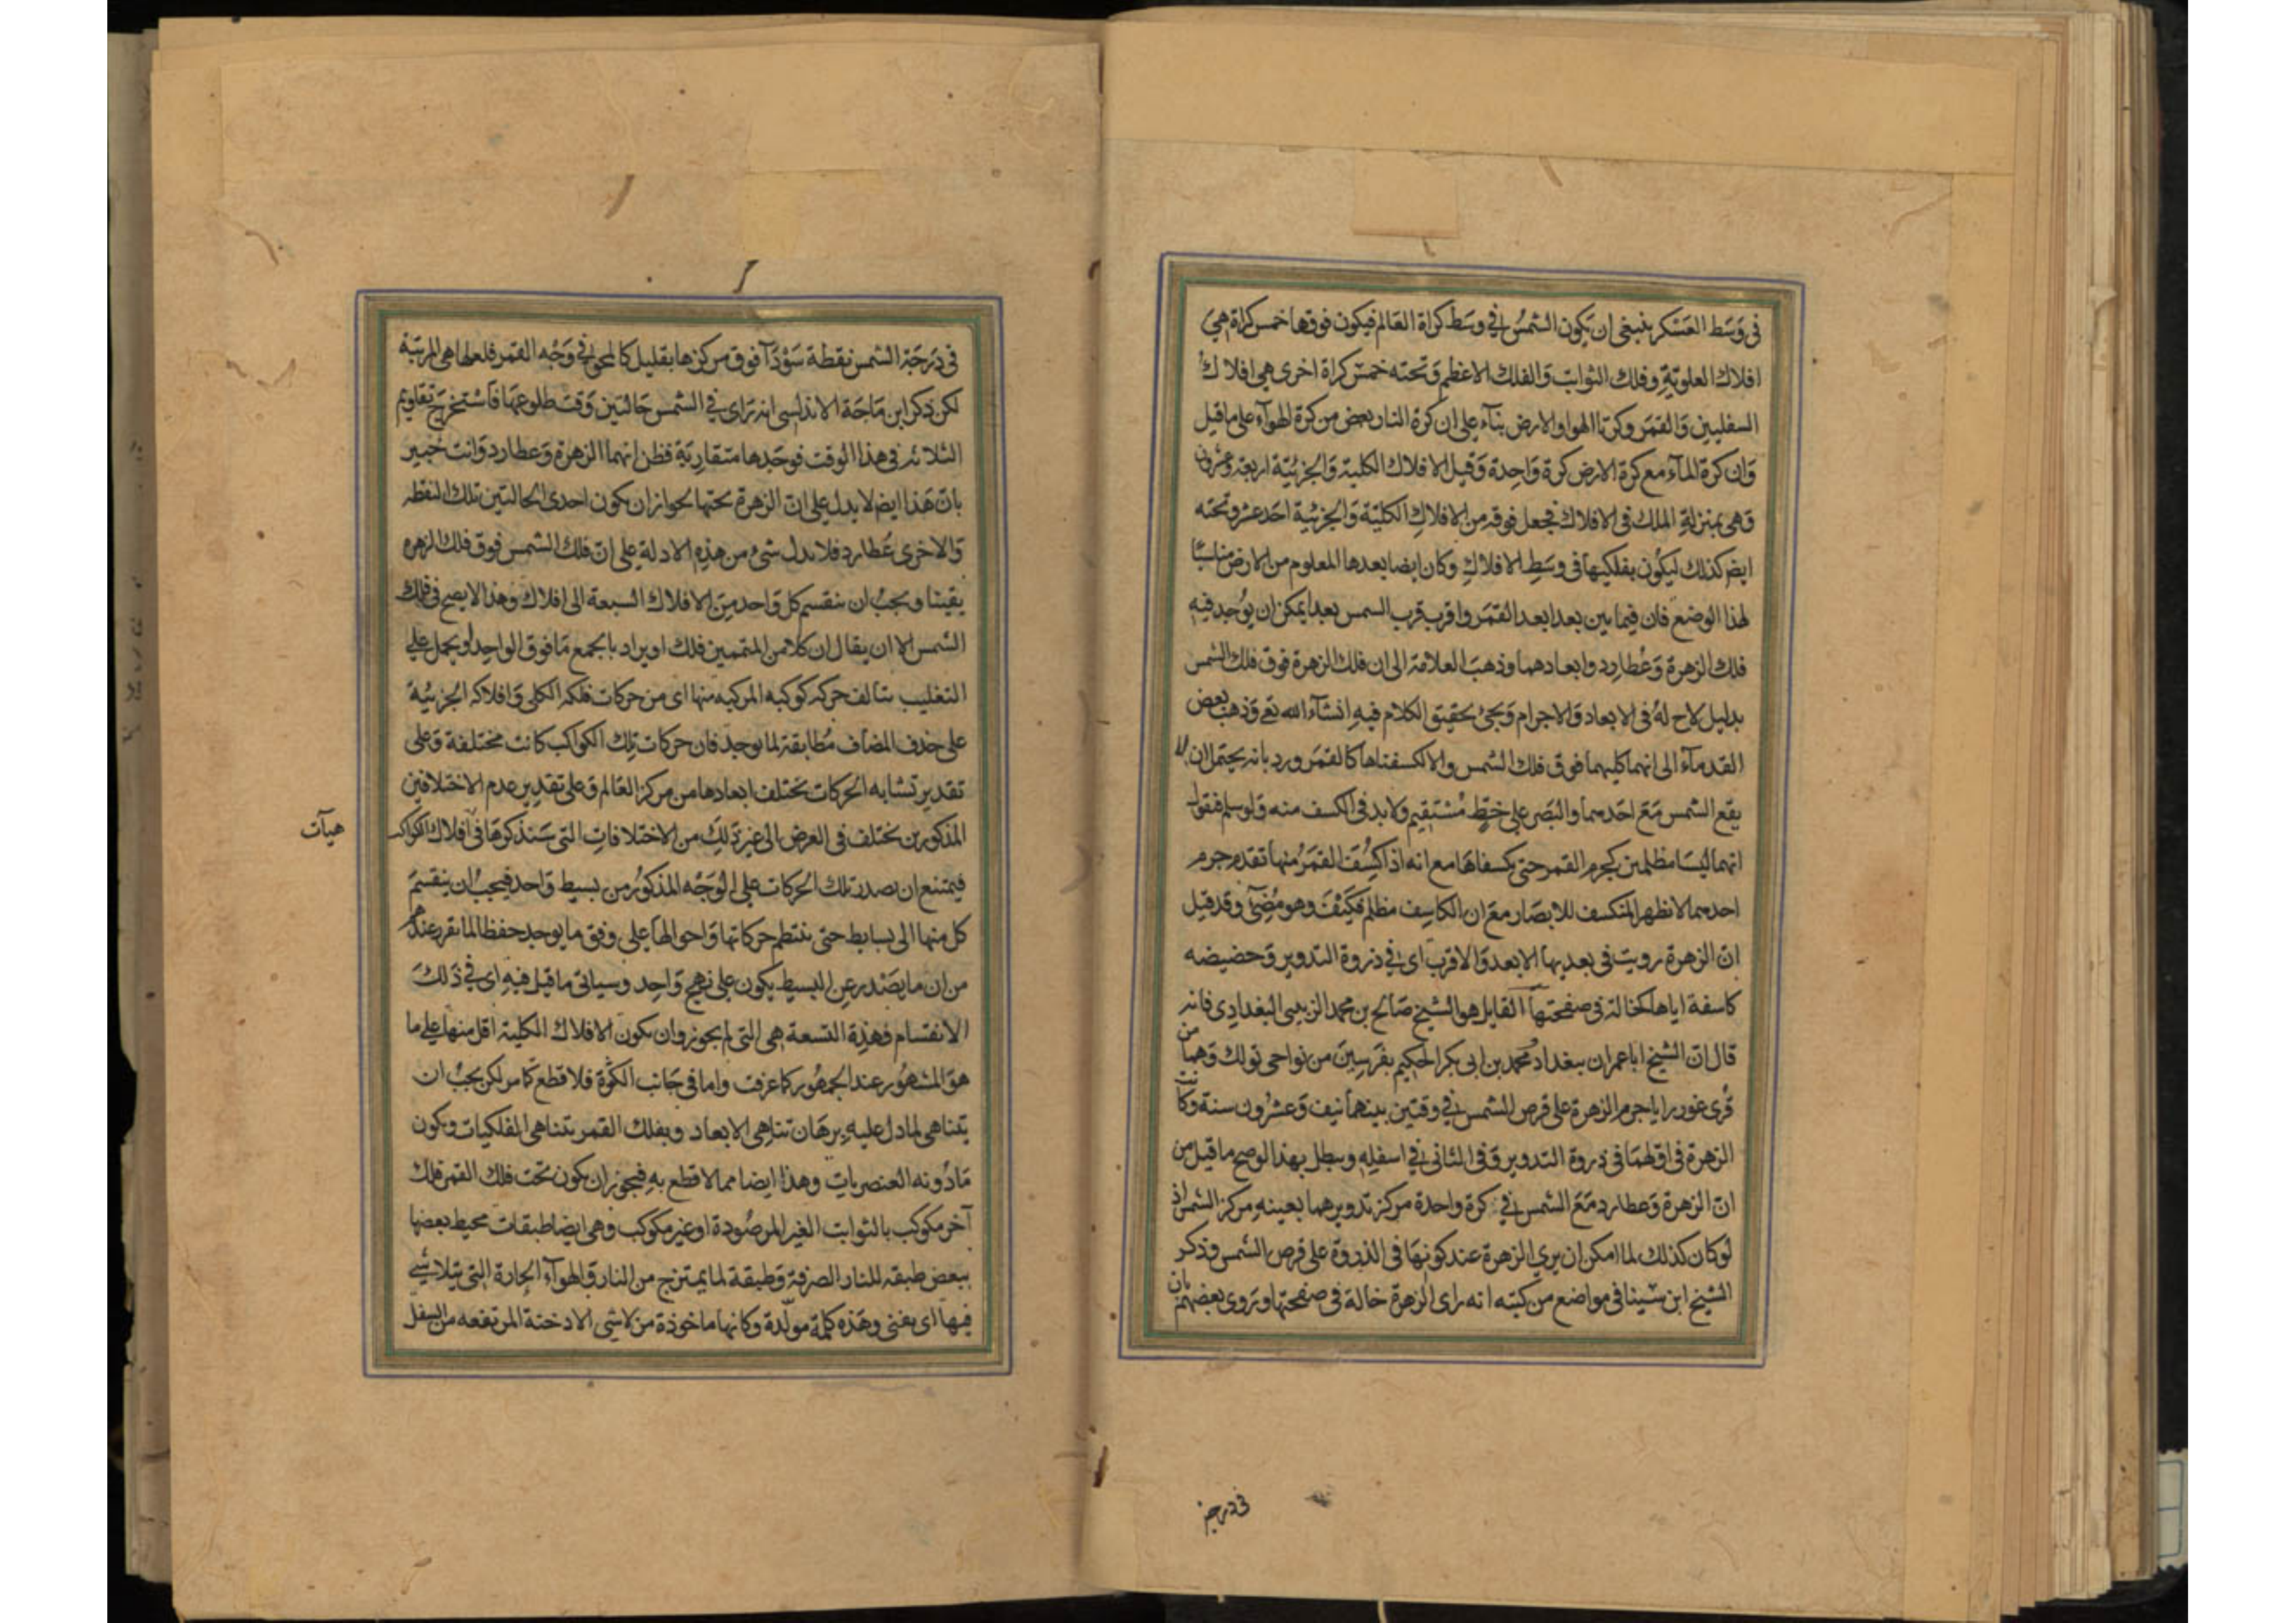 في وسط العسكر ينبغي ان يكون الشمس في وسط كراة العالم فيكون فوقها خمس كراة هي
افلاك العلوية وفلك الثوابت والفلك الاعظم وتحته خمس كراة اخرى هي افلاك
السفليين والقمر وكرتا الهوا والارض بناء على ان كرة النار بعض من كرة الهوآء على ما قيل
وان كرة المآء مع كرة الارض كرة واحدة وقيل الافلاك الكلية والجزئية اربعة وعشرون
وهي بمنزلة الملك في الافلاك فجعل فوقه من الافلاك الكلية والجزئية احد عشر وتحته
ايضا كذلك ليكون بفلكيها في وسط الافلاك وكان ايضا بعدها المعلوم من الارض مناسبًا
لهذا الوضع فان فيما بين بعد ابعد القمر واقرب قرب الشمس بعدا يمكن ان يوجد فيه
فلك الزهرة وعطارد وابعادهما وذهب العلامة الى ان فلك الزهرة فوق فلك الشمس
بدليل لاح له في الابعاد والاجرام ويجئ تحقيق الكلام فيه انشآء الله تع وذهب بعض
القدمآء الى انهما كليهما فوق فلك الشمس والا لكسفتاها كالقمر ورد بانه يحتمل ان لا
يقع الشمس مع احدهما والبصر على خط مستقيم ولا بد في الكسف منه ولو سلم فنقول
انهما ليسا مظلمين كجرم القمر حتى كسفاها مع انه اذا كسفت القمر منها تقدم جرم
احدهما لا نظهر المنكسف للابصار مع ان الكاسف مظلم فكيف وهو مضئ وقد قيل
ان الزهرة رويت في بعديها الابعد والاقرب اى في ذروة التدوير وحضيضه
كاسفة اياها كخالة في صفحتها القايل هو الشيخ صالح بن محمد الزينبي البغدادي فانه
قال ان الشيخ ابا عمران ببغداد ومحمد بن ابي بكر الحكيم بفرسين من نواحي تولك وهما من
قرى غور رايا جرم الزهرة على قرص الشمس في وقتين بينهما نيف وعشرون سنة وكانت
الزهرة في اولهما في ذروة التدوير وفي الثاني في اسفله وبطل بهذا لو صح ما قيل من
ان الزهرة وعطارد مع الشمس في كرة واحدة مركز تدويرهما بعينه مركز الشمس اذ
لو كان كذلك لما امكن ان يرى الزهرة عند كونها في الذروة على قرص الشمس وذكر
الشيخ ابن سينا في مواضع من كتبه انه راى الزهرة خالة في صفحتها وتروى بعضهم بان
في درجة
في درجة الشمس نقطة سودآ فوق مركزها بقليل كالمحو في وجه القمر فلعلها هي المرتبة
لكن ذكر ابن ماجة الاندلسي انه تراى في الشمس خالتين وقت طلوعها فاستخرج تقاويم
الثلاثه في هذا الوقت فوجدها متقاربة فظن انهما الزهرة وعطارد وانت خبير
بان هذا ايضا لا يدل على ان الزهرة تحتها لجواز ان يكون احدى الخالتين تلك النقطه
والاخرى عطارد فلا يدل شئ من هذه الادلة على ان فلك الشمس فوق فلك الزهره
يقينا ويجب ان ينقسم كل واحد من الافلاك السبعة الى افلاك وهذا لا يصح في فلك
الشمس الا ان يقال ان كلا من المتممين فلك او يراد بالجمع ما فوق الواحد او يحمل على
التغليب يتالف حركة كوكبه المركبه منها اى من حركات فلكه الكلى وافلاكه الجزئية
على حذف المضاف مطابقة لما يوجد فان حركات تلك الكواكب كانت مختلفة وعلى
تقدير تشابه الحركات تختلف ابعادها من مركز العالم وعلى تقدير عدم الاختلافين
المذكورين تختلف في العرض الى غير ذلك من الاختلافات التي سنذكرها في افلاك الكواكب
هيآت
فيمتنع ان يصدر تلك الحركات على الوجه المذكور من بسيط واحد فيجب ان ينقسم
كل منها الى بسايط حتى ينتظم حركاتها واحوالها على وفق ما يوجد حفظا لما تقرر عندهم
من ان ما يصدر عن البسيط يكون على نهج واحد وسياتى ما قيل فيه اى في ذلك
الانقسام فهذة التسعة هي التي لم يجوزوان يكون الافلاك الكلية اقل منها على ما
هو المشهور عند الجمهور كما عرفت واما في جانب الكثرة فلا قطع كما مر لكن يجب ان
يتناهى لما دل عليه برهان تناهى الابعاد وبفلك القمر يتناهى الفلكيات ويكون
ما دونه العنصريات وهذا ايضا مما لا قطع به فيجوز ان يكون تحت فلك القمر فلك
آخر مكوكب بالثوابت الغير المرصودة او غير مكوكب وهي ايضا طبقات محيط بعضها
ببعض طبقه للنار الصرفة وطبقة لما يمتزج من النار والهوآء الحارة التي يتلاشى
فيها اى يفنى وهذه كلمة مولدة وكانها ماخوذة من لاشى الادخنة المرتفعه من السفل